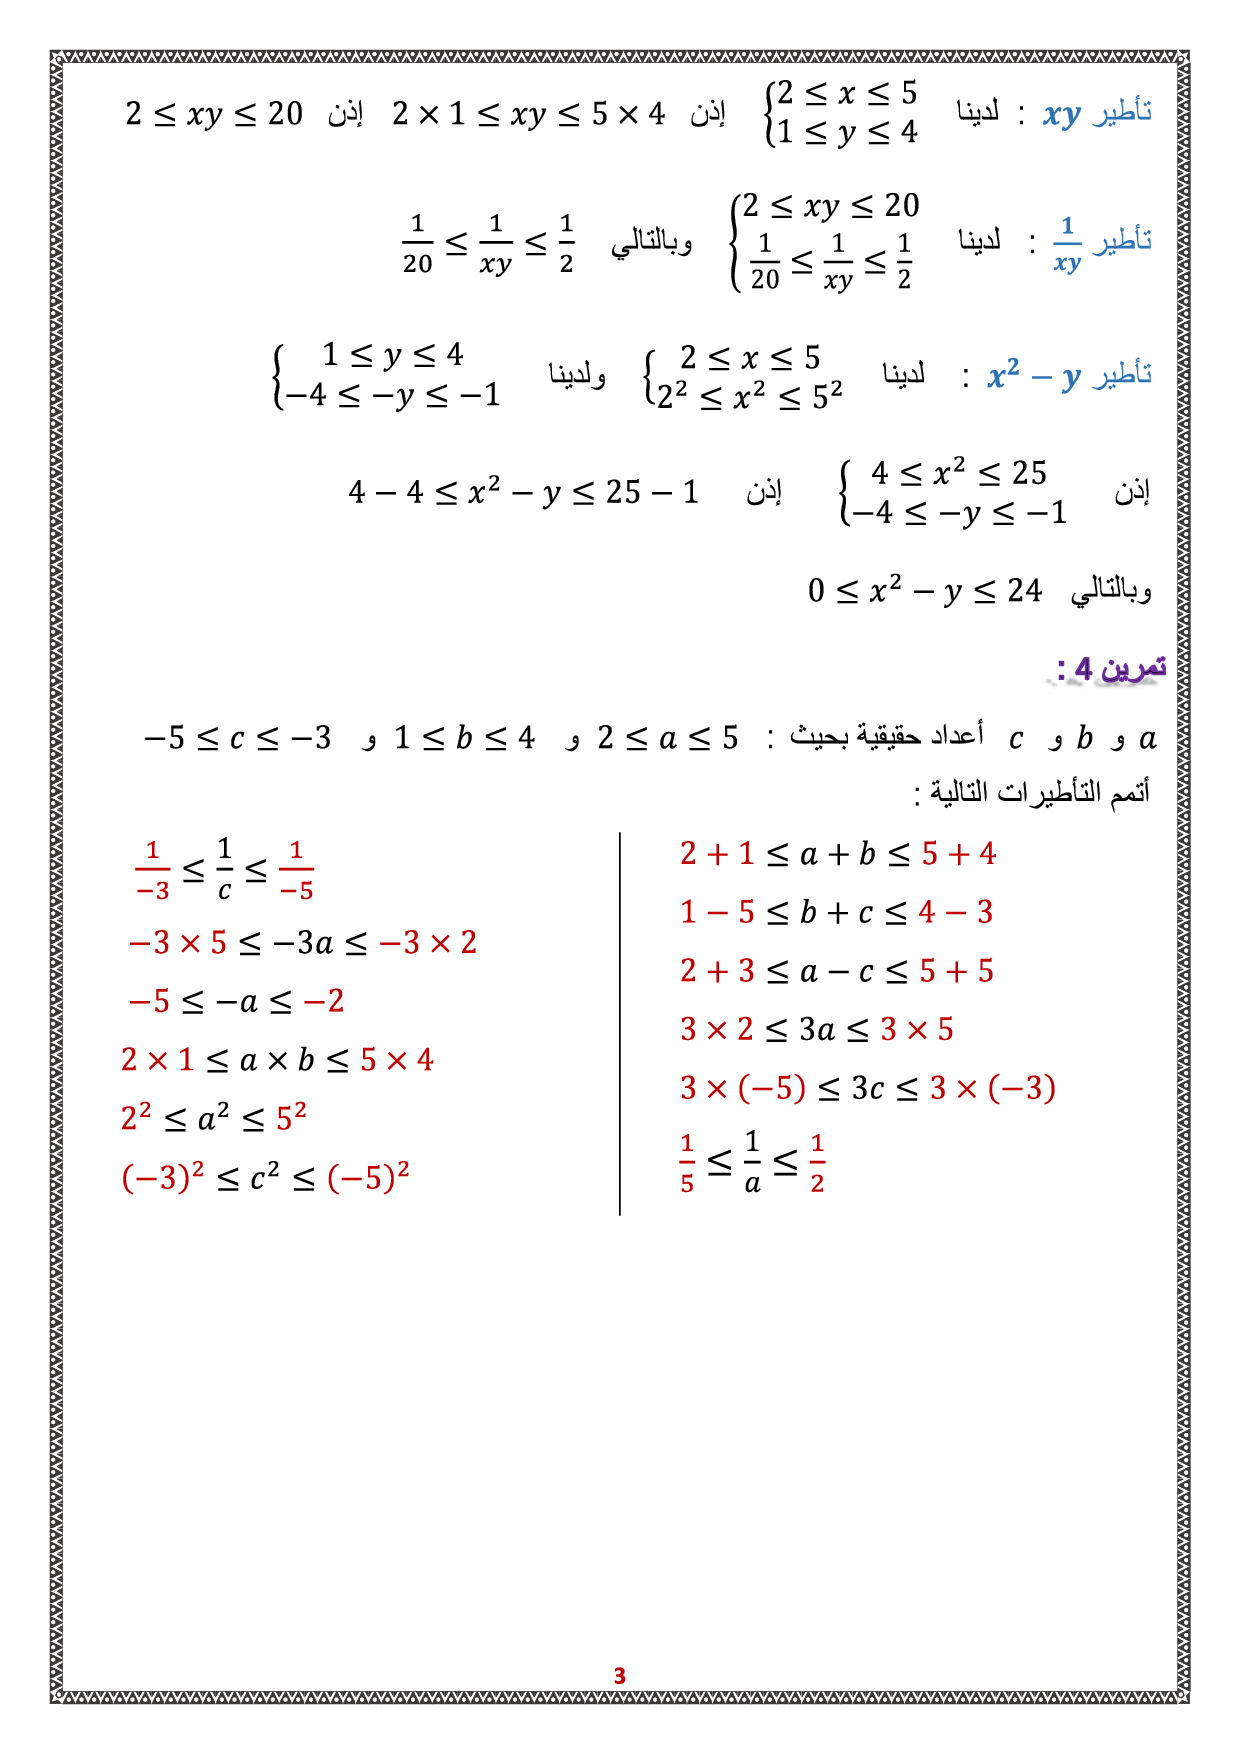 تأطير xy : لدينا { 2 ≤ x ≤ 5 ; 1 ≤ y ≤ 4 إذن 2 × 1 ≤ xy ≤ 5 × 4 إذن 2 ≤ xy ≤ 20
تأطير 1/xy : لدينا { 2 ≤ xy ≤ 20 ; 1/20 ≤ 1/xy ≤ 1/2 وبالتالي 1/20 ≤ 1/xy ≤ 1/2
تأطير x² − y : لدينا { 2 ≤ x ≤ 5 ; 2² ≤ x² ≤ 5² ولدينا { 1 ≤ y ≤ 4 ; −4 ≤ −y ≤ −1
إذن { 4 ≤ x² ≤ 25 ; −4 ≤ −y ≤ −1 إذن 4 − 4 ≤ x² − y ≤ 25 − 1
وبالتالي 0 ≤ x² − y ≤ 24
تمرين 4 :
a و b و c أعداد حقيقية بحيث : 2 ≤ a ≤ 5 و 1 ≤ b ≤ 4 و −5 ≤ c ≤ −3
أتمم التأطيرات التالية :
2 + 1 ≤ a + b ≤ 5 + 4
1 − 5 ≤ b + c ≤ 4 − 3
2 + 3 ≤ a − c ≤ 5 + 5
3 × 2 ≤ 3a ≤ 3 × 5
3 × (−5) ≤ 3c ≤ 3 × (−3)
1/5 ≤ 1/a ≤ 1/2
1/−3 ≤ 1/c ≤ 1/−5
−3 × 5 ≤ −3a ≤ −3 × 2
−5 ≤ −a ≤ −2
2 × 1 ≤ a × b ≤ 5 × 4
2² ≤ a² ≤ 5²
(−3)² ≤ c² ≤ (−5)²
3